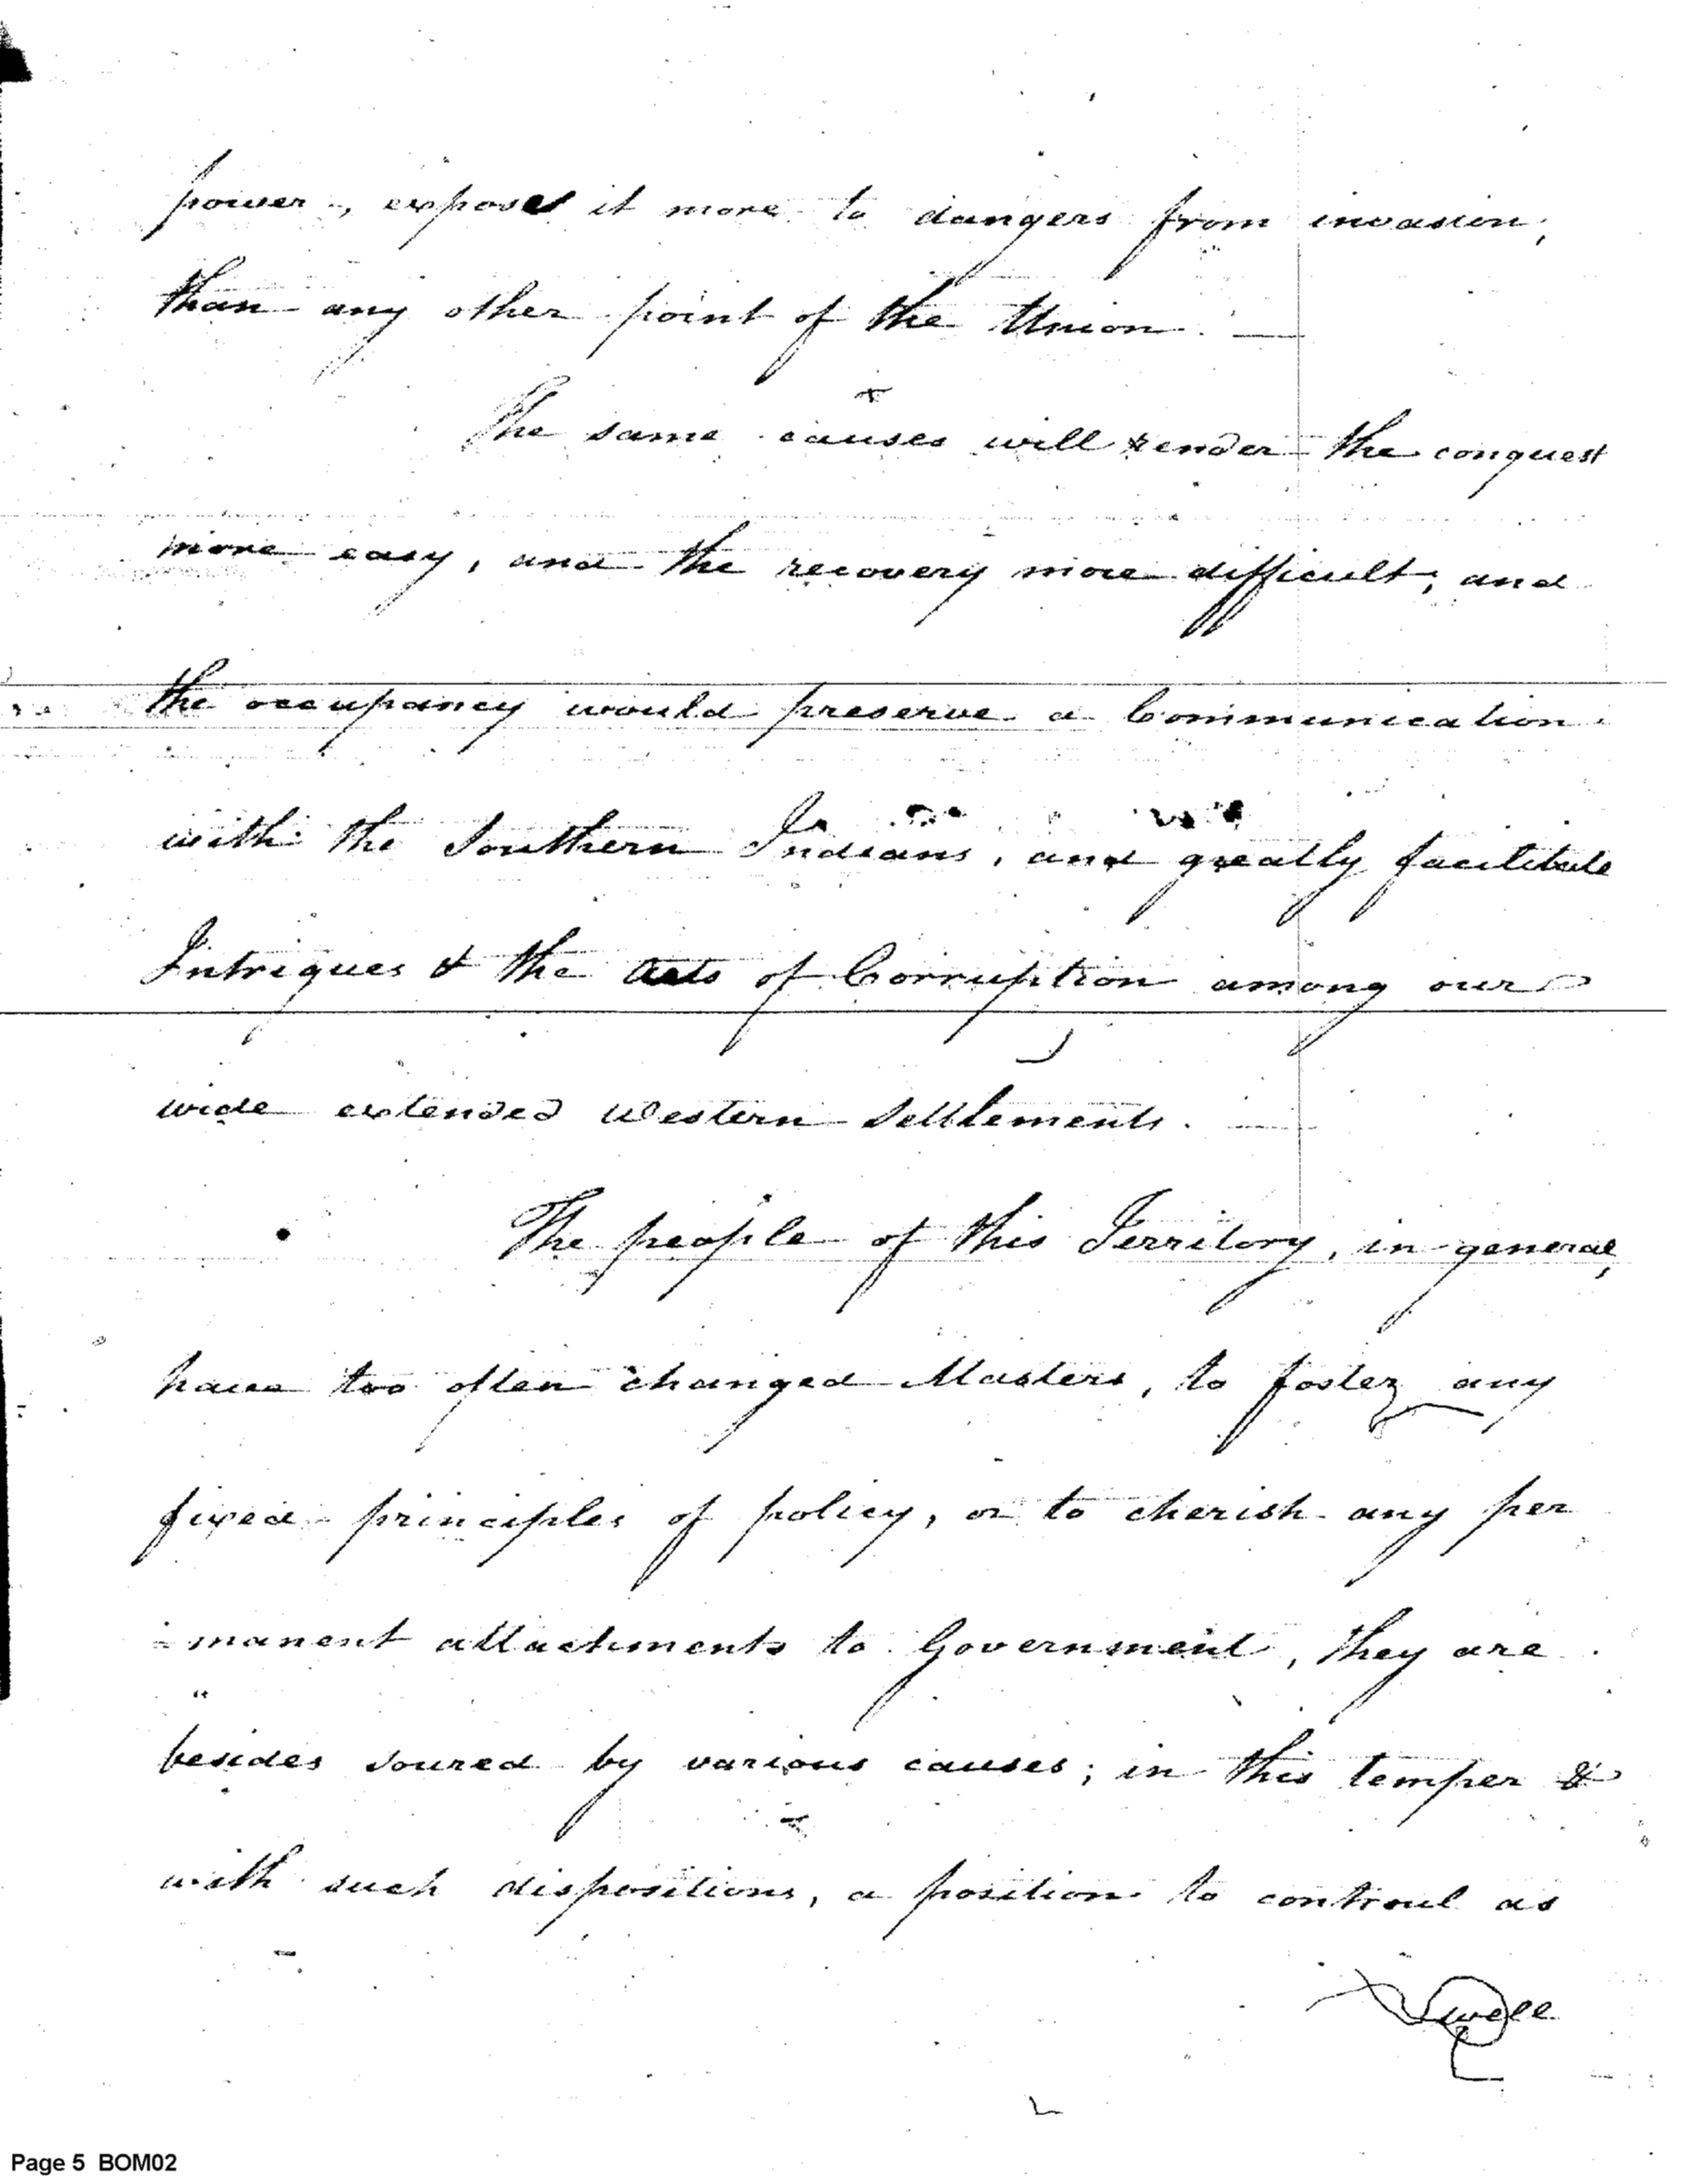 power, exposes it more to dangers from invasion,
than any other point of the Union. —
The same causes will render the conquest
more easy, and the recovery more difficult, and
the occupancy would preserve a Communication
with the Southern Indians, and greatly facilitate
Intrigues & the acts of Corruption among our
wide extended Western Settlements. —
The people of this Territory, in general,
have too often changed Masters, to foster any
fixed principles of policy, or to cherish any per
=manent attachments to Government, they are
besides soured by various causes; in this temper &
with such dispositions, a position to controul as
well
Page 5 BOM02